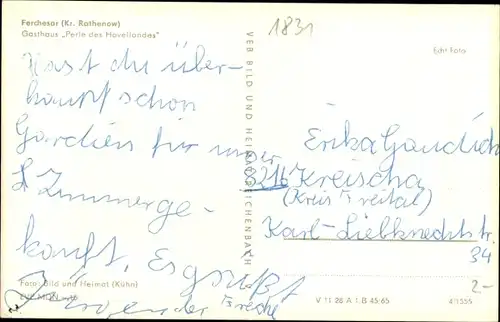 Ferchesar (Kr. Rathenow)
Gasthaus „Perle des Havellandes"
1831
Echt Foto
Hast du über-
haupt schon
Gardien für unser
Zimmer ge-
kauft, Es grüßt
Jürgen der
VEB BILD UND HEIMAT REICHENBACH
Erika
8216 Kreischa
(Kreis Freital)
Karl-Liebknechtstr
34
Foto: Bild und Heimat (Kühn)
V 11 28 A 1 B 45/65
4/1355
2-